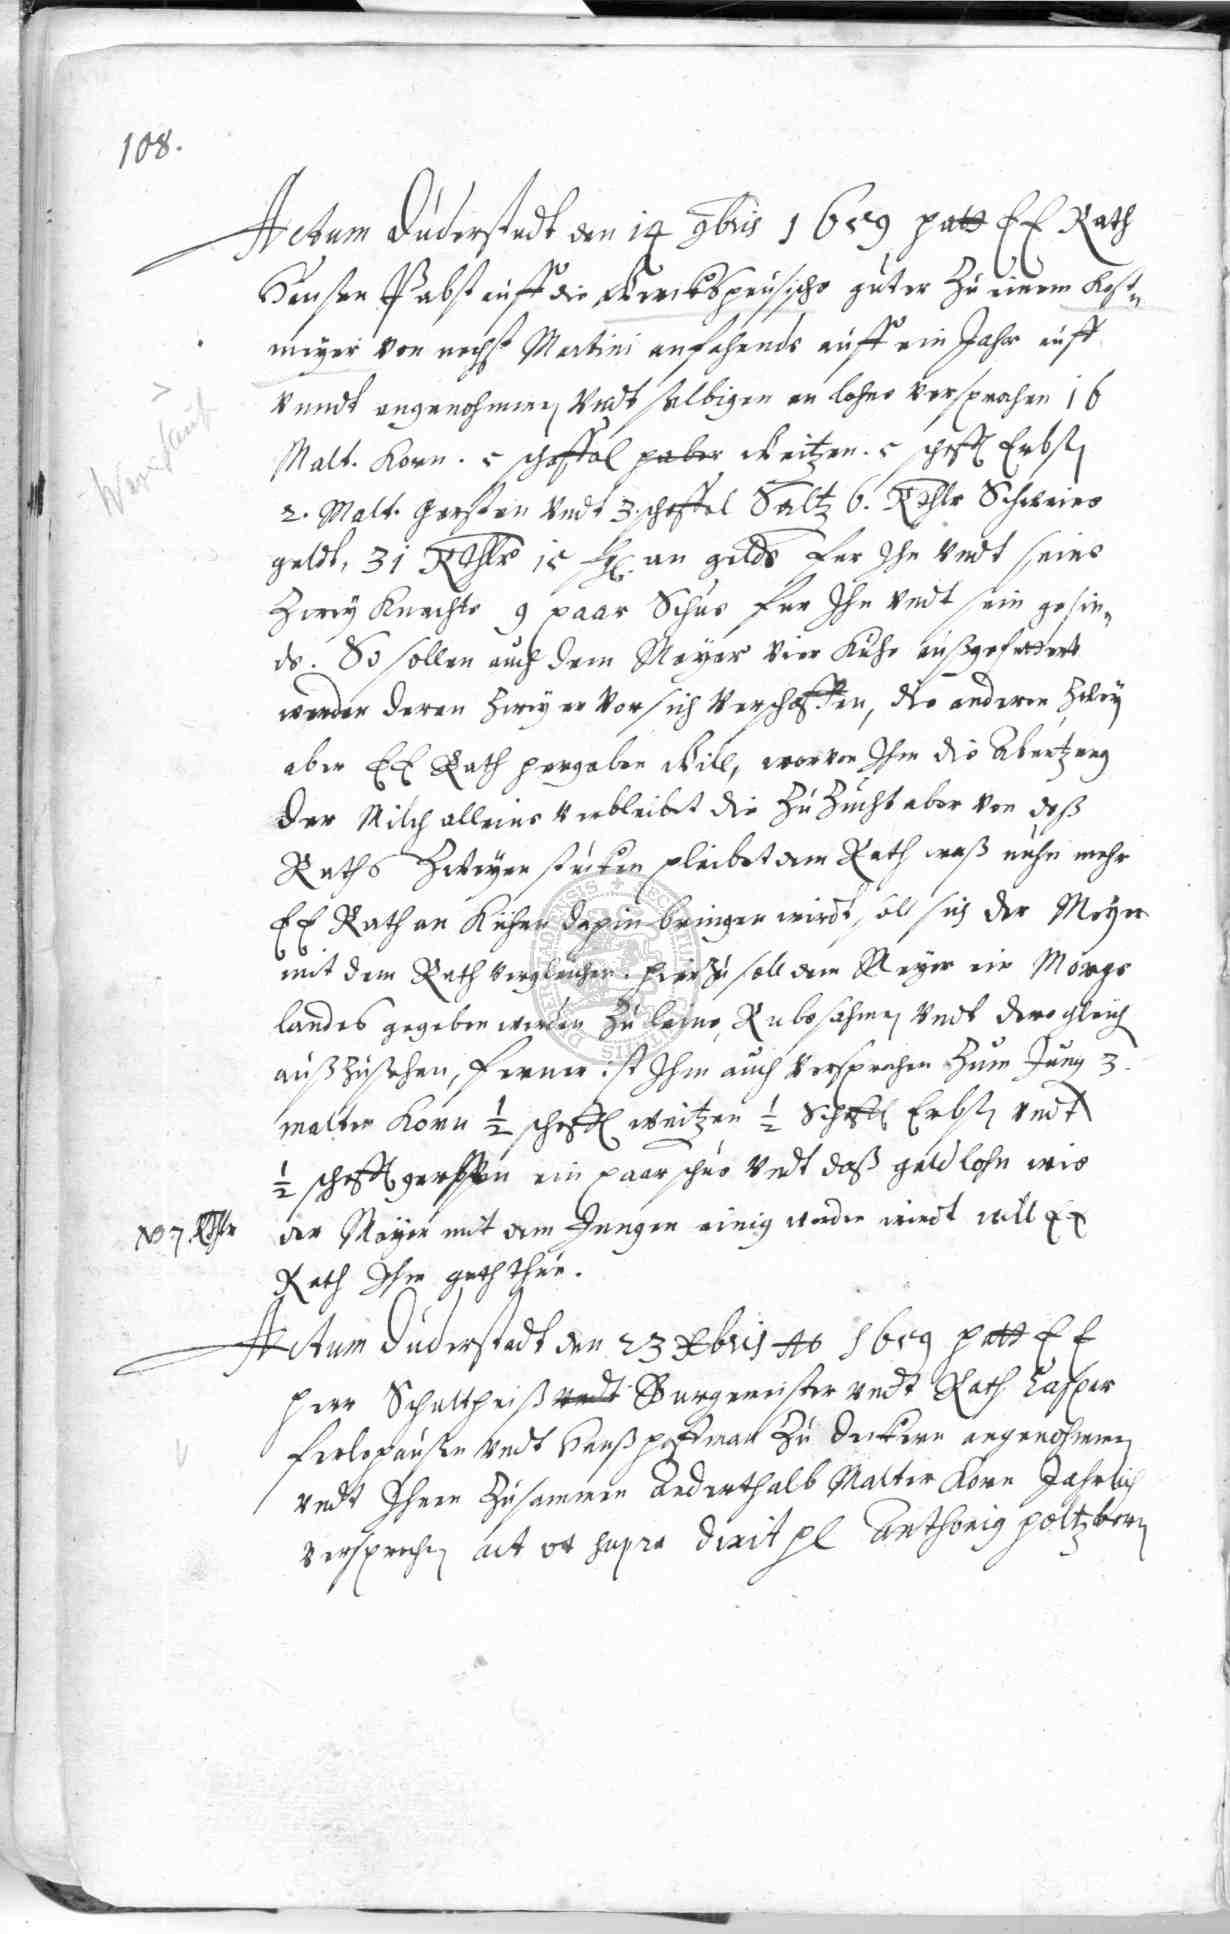 108.
Actum Duderstadt den 14 9bris 1659 hatt EE Rath
Hansen Pabst auff die Wercksheusische güter Zu einem Kost-
meyer von nechst Martini anfahends auff ein Jahr auff
vnndt angenohmmen Vndt selbigen an lohne versprochen 16
Malt. Korn. 5 scheffel haber Weitzen. 5 scheffl Erbßen
2. Malt. Gersten Vndt 3. scheffel Saltz 6. Rthlr Schweine
geldt, 31 Rthlr 15 an gelde Fer Ihn Vndt seine
Zwey Knechte 9 paar Schue fer Ihn Vndt sein gesin-
de. So sollen auch dem Meyer vier Kühe außgefuttert
werden deren Zwey er vor sich verschaffen, die anderen Zwey
aber EE Rath hergeben will, worvon Ihm die Abnutzung
der Milch alleine verbleibet die Zu Zucht aber von deß
Raths Zweyen stücken pleibet dem Rath waß nuhn mehr
EE Rath an Kühen dahin bringen wirdt, soll sich der Meyer
mit dem Rath vergleichen. hierzu soll dem Meyer ein Morge
landes gegeben werden Zu leine, Rubesahmen Vndt dero gleich
außzusehen, ferner ist Ihm auch versprochen Zum Jung 3
malter Korn ½ scheffl weitzen ½ Scheffl Erbßen vndt
½ scheffl gersten ein paar schue Vndt daß geldlohn wie
NB 7. Rthlr der Meyer mit dem Jungen einig werden wirdt will EE
Rath Ihm guth thun.
Actum Duderstadt den 23 Xbris Ao 1659 hatt EE
Herr Schultheiß vndt Burgemeister vndt Rath Casper
Ferlehausen vndt Hanß Hoffman Zu deckern angenohmmen
vndt Ihnen Zusammen Anderthalb Malter Korn Jahrlich
versprochen act ut supra dixit Anthonig Holtzborn